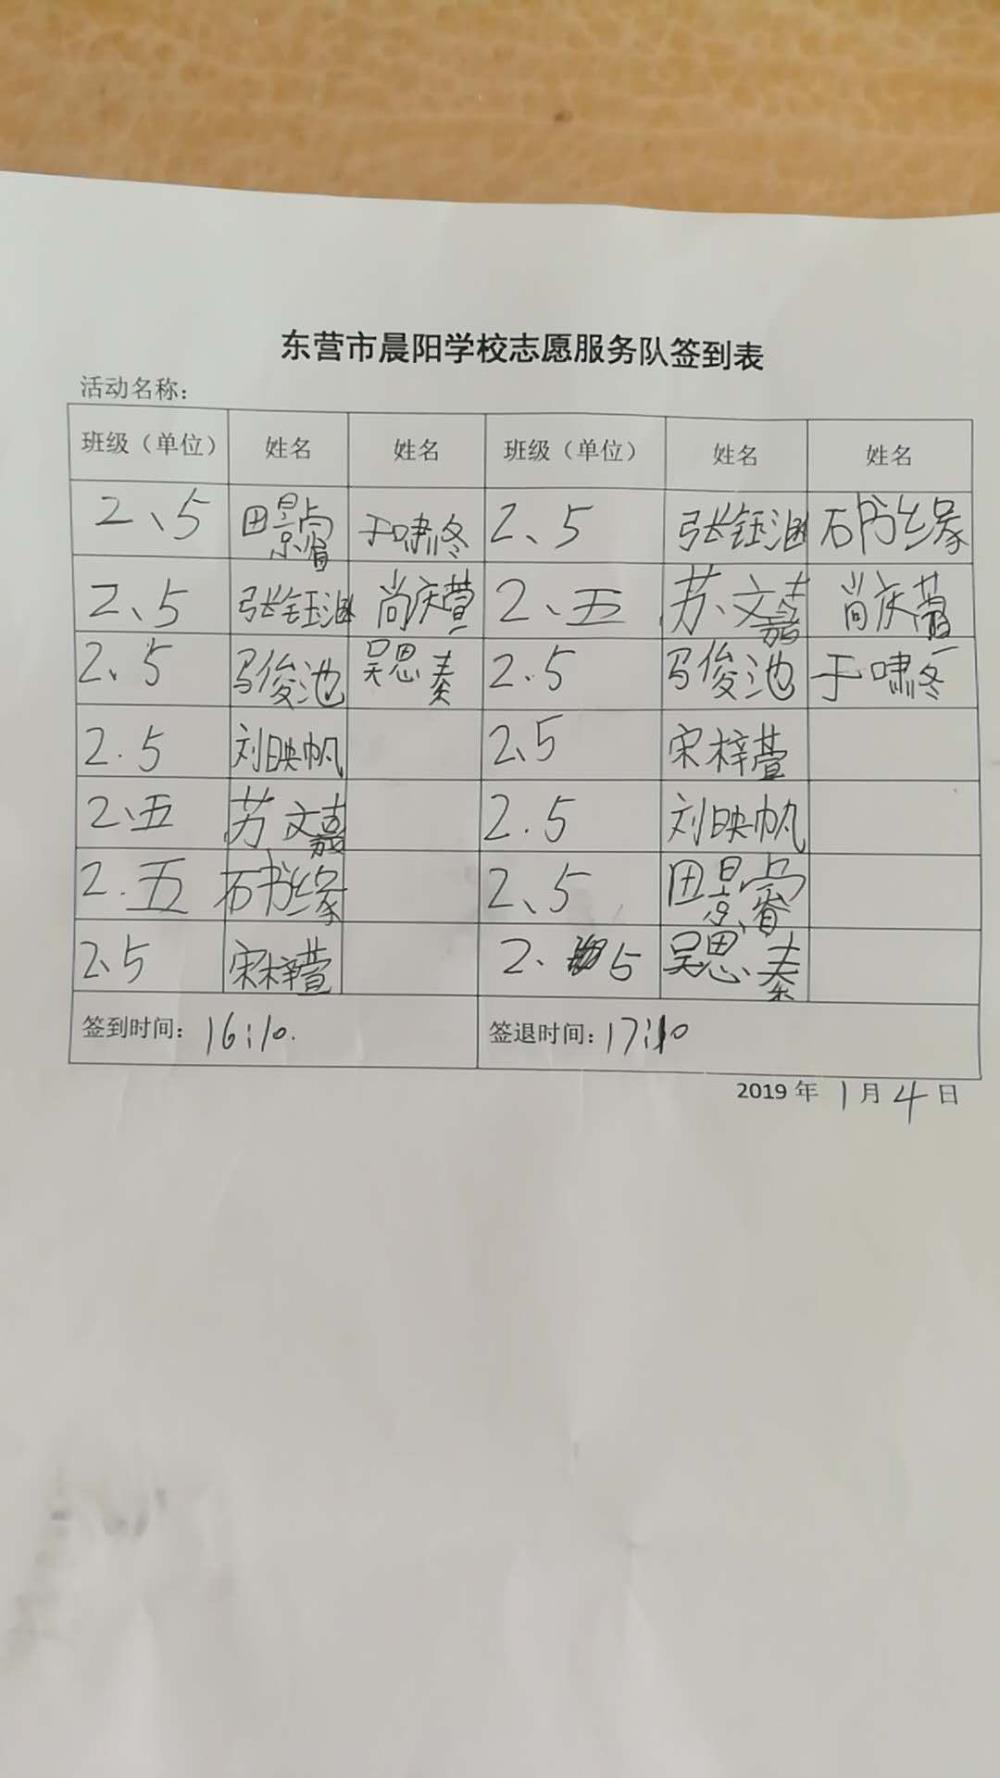 东营市晨阳学校志愿服务队签到表
活动名称：
班级（单位） 姓名 姓名 班级（单位） 姓名 姓名
2、5 田景睿 于啸冬 2、5 张钰涵 石书缘
2、5 张钰涵 尚庆萱 2、五 苏文嘉 尚庆萱
2、5 马俊池 吴思秦 2.5 马俊池 于啸冬
2.5 刘映帆 2、5 宋梓萱
2、五 苏文嘉 2.5 刘映帆
2.五 石书缘 2、5 田景睿
2、5 宋梓萱 2、5 吴思秦
签到时间：16:10. 签退时间：17:10
2019 年 1 月 4 日